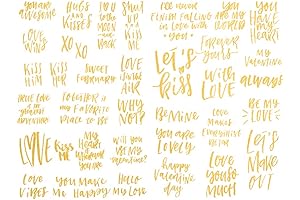 you are
awesome
HUGS
AND
KISSES
to the
MOON
AND
BACK
SHUT
UP
KISS
ME
I'LL NEVER
FINISH FALLING
IN LOVE WITH
YOU
YOU
ARE MY
WORLD
YOU
HAVE
MY
HEART
LOVE
WINS
XO
XO
Forever
yours
MY
VALENTINE
KISS
HIM
KISS
HER
SWEET
FEBRUARY
LOVE
IS IN THE
AIR
Let's
kiss
WITH
LOVE
always
TRUE LOVE
ADVENTURE
TOGETHER IS
MY FAVORITE
PLACE
TO BE
WHY
NOT?
BE MY
LOVE
LOVE
Kiss
ME
My
HEART
IS
WHEREVER
YOU ARE
Will you
BE MY
VALENTINE?
Be Mine
YOU ARE
LOVELY
LOVE
MAKES
EVERYTHING
Let's
Make
OUT
happy
Valentine
day
LOVE
YOU SO
MUCH
Love
Vibes
Me
Happy
Hello
My Love